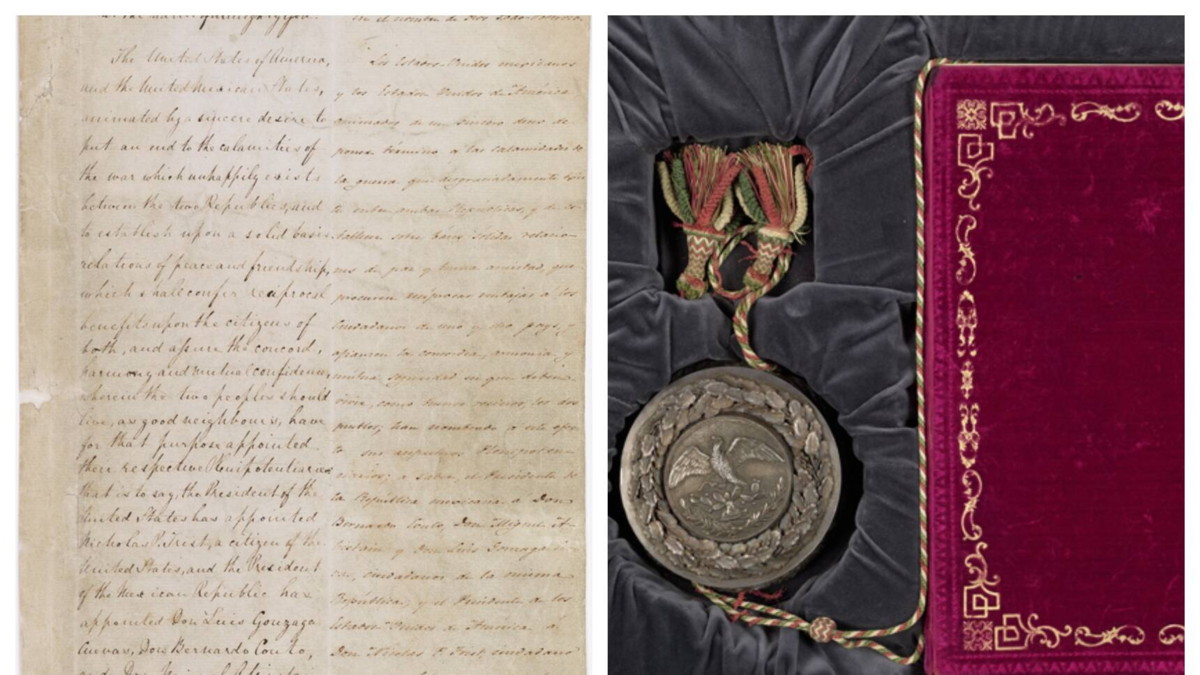 The United States of America,
and the United Mexican States,
animated by a sincere desire to
put an end to the calamities of
the war which unhappily exists
between the two Republics, and
to establish upon a solid basis
relations of peace and friendship,
which shall confer reciprocal
benefits upon the citizens of
both, and assure the concord,
harmony and mutual confidence,
wherein the two peoples should
live, as good neighbours, have
for that purpose appointed
their respective Plenipotentiaries
that is to say, the President of the
United States has appointed
Nicholas P. Trist, a citizen of the
United States, and the President
of the Mexican Republic has
appointed Don Luis Gonzaga
Cuevas, Don Bernardo Couto,
Los Estados Unidos mexicanos
y los Estados Unidos de América
animados de un sincero deseo de
poner término a las calamidades de
la guerra que desgraciadamente
entre ambas Repúblicas, y de
sobre bases solidas relacio
nes de paz y buena amistad, que
procuren reciprocas ventajas a los
ciudadanos de uno y otro pays, y
afiancen la concordia, armonia y
mutua seguridad en que deben
vivir, como buenos vecinos, los dos
pueblos; han nombrado a este efec
to sus respectivos Plenipoten
ciarios; a saber, el Presidente de
la República mexicana a Don
Bernardo Couto, Don Miguel A
tristain y Don Luis Gonzaga
ciudadanos de la misma
República; y el Presidente de los
Estados Unidos de América a
Don Nicolas P. Trist, ciudadano